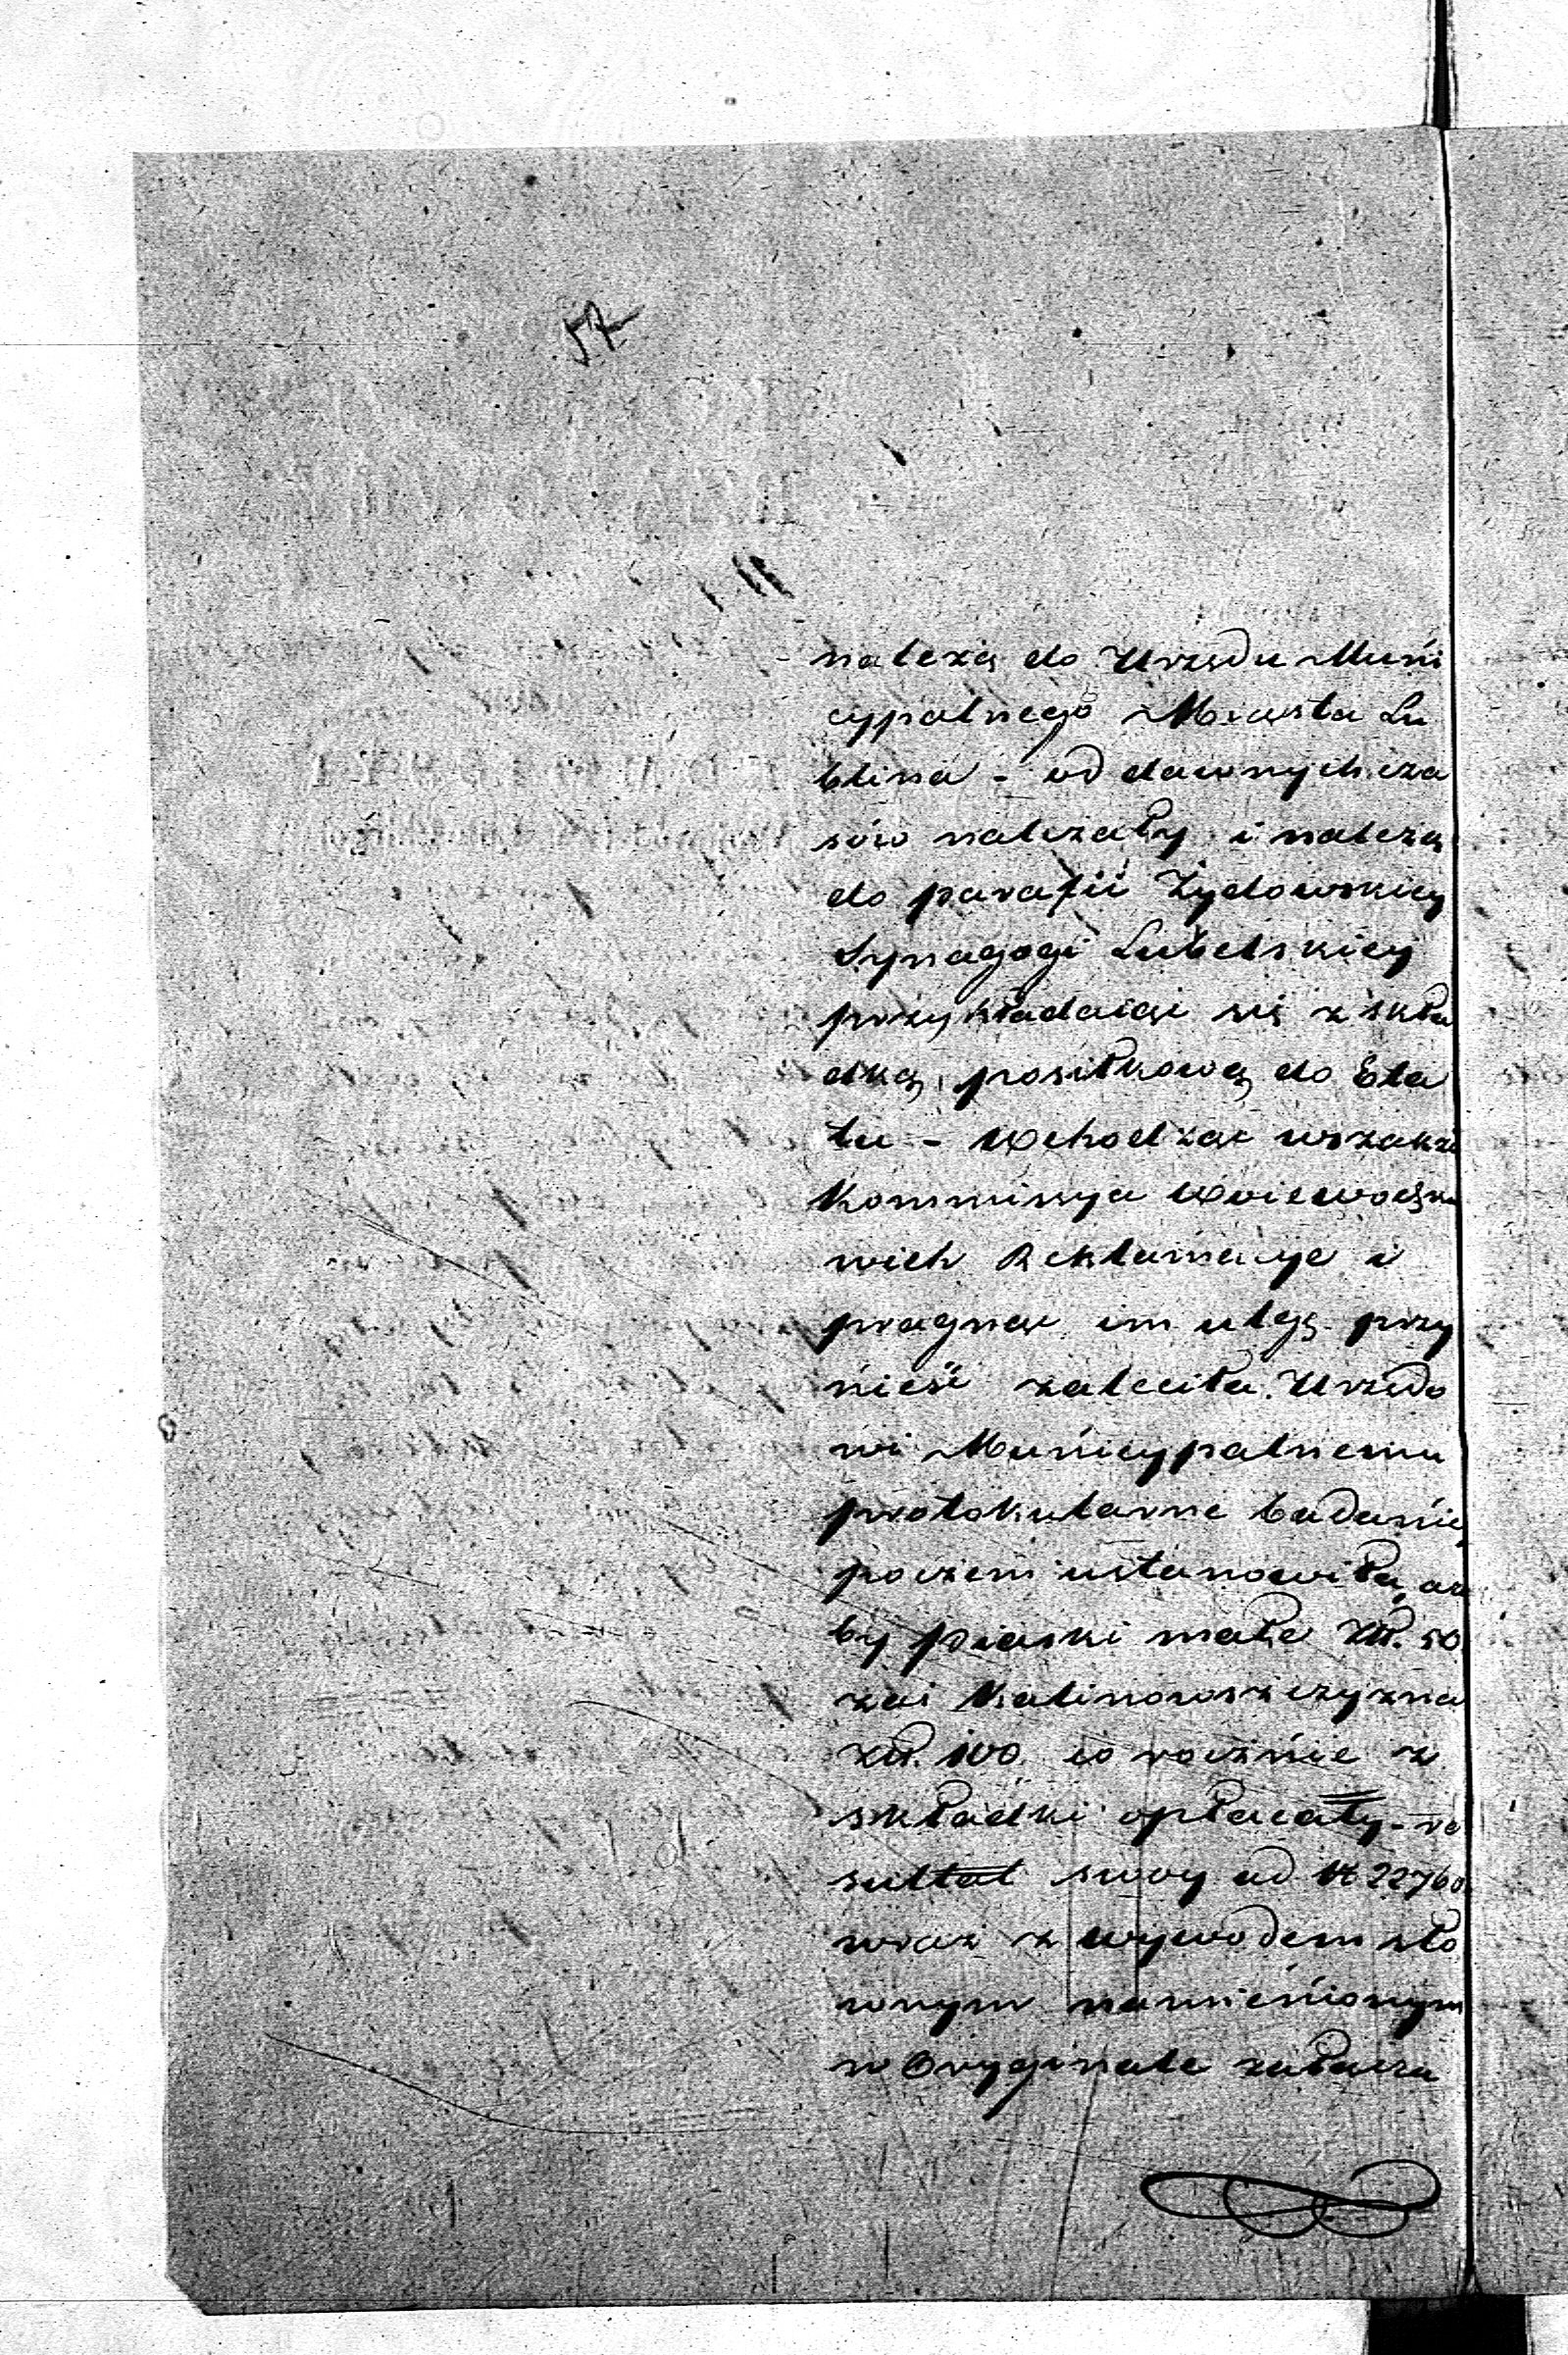 57
należą do Urzędu Muni
cypalnego Miasta Lu
blina - od dawnych cza
sów należały i należą
do parafii Żydowskiey
Synagogi Lubelskiey
przykładaiąc się z skła
dką posiłkową do Eta
tu - Wchodząc wszakże
Kommissya Woiewodzka
w ich Reklamacye i
pragnąc im ulgę przy
nieść zaleciła Urzędo
wi Municypalnemu
protokularne badanie
poczem ustanowiła, a
by Piaski małe Złł. 50
zaś Kalinowszczyzna
złł. 100 co rocznie z
składki opłacały - re
sultat swoy ad N 22760
wraz z wywodem sło
wnym namienionym
w Oryginale załącza